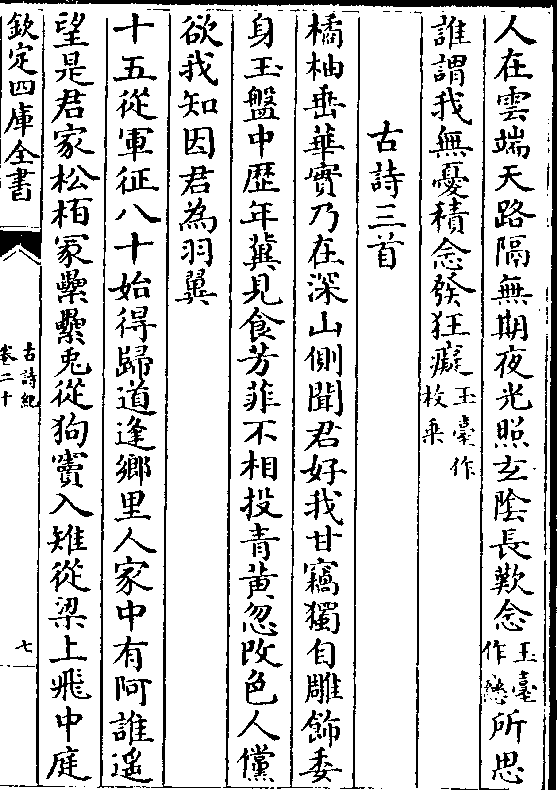 人在雲端天路隔無期夜光照玄隂長歎念玉臺作戀所思
誰謂我無憂積念發狂癡玉臺作枚乗
古詩三首
橘柚垂華實乃在深山側聞君好我甘竊獨自雕飾委
身玉盤中歴年冀見食芳菲不相投青黄忽改色人儻
欲我知因君為羽翼
十五從軍征八十始得歸道逢鄉里人家中有阿誰遥
望是君家松栢冢纍纍兎從狗竇入雉從梁上飛中庭
欽定四庫全書
古詩紀
卷二十
七